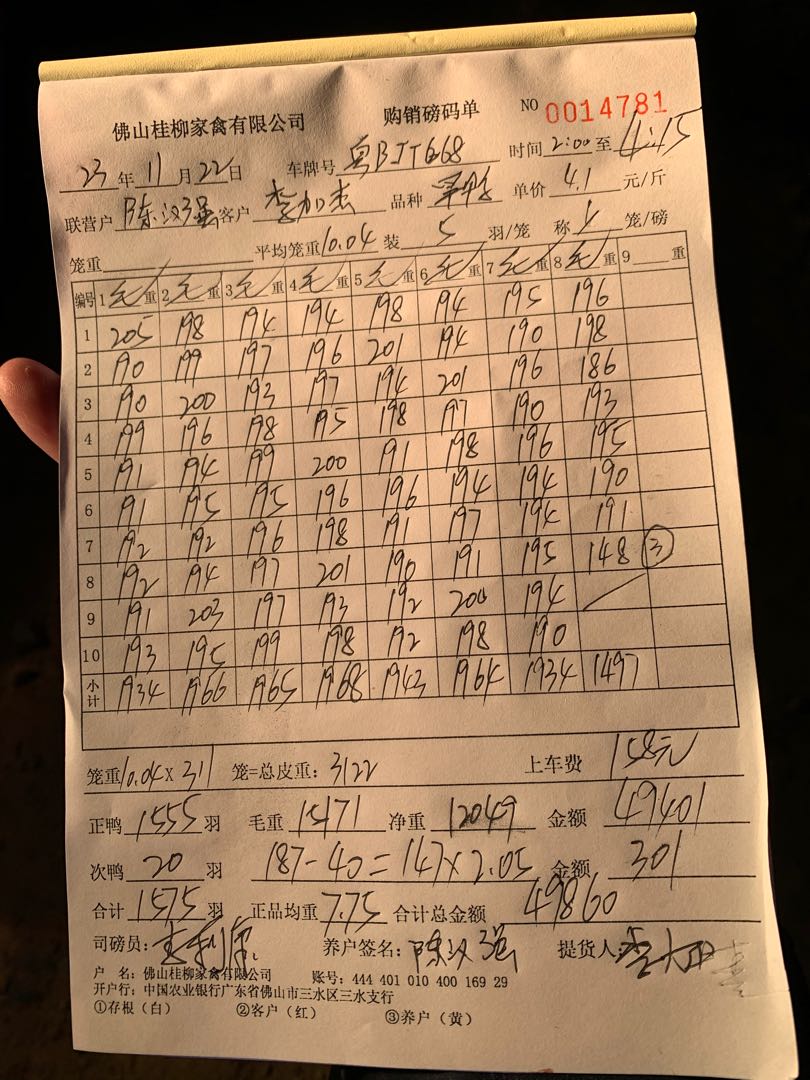 佛山桂柳家禽有限公司 购销磅码单 NO 0014781
23年11月22日 车牌号 粤BJT668 时间2:00至4:15
联营户 陈汉强 客户 李加杰 品种 单价 4.1 元/斤
笼重 平均笼重10.04 装 5 羽/笼 称 笼/磅
编号 1毛重 2毛重 3毛重 4毛重 5毛重 6毛重 7毛重 8毛重 9 重
1 205 198 194 194 198 194 195 196
2 190 199 197 196 201 194 190 198
3 190 200 193 197 194 201 196 186
4 199 196 198 195 198 197 190 193
5 191 194 199 200 191 198 196 195
6 191 195 195 196 196 194 194 190
7 192 192 196 198 191 197 194 191
8 192 194 197 201 190 191 195 148 ③
9 191 203 197 193 192 200 194
10 193 195 199 198 192 198 190
小计 1934 1966 1965 1968 1943 1964 1934 1497
笼重10.04×311 笼=总皮重:3122 上车费 158元
正鸭 1555 羽 毛重 15171 净重 12049 金额 49401
次鸭 20 羽 187-40=147×2.05 金额 301
合计 1575 羽 正品均重 7.75 合计总金额 49860
司磅员: 养户签名: 陈汉强 提货人:
户 名:佛山桂柳家禽有限公司 账号:444 401 010 400 169 29
开户行:中国农业银行广东省佛山市三水区三水支行
①存根(白) ②客户(红) ③养户(黄)